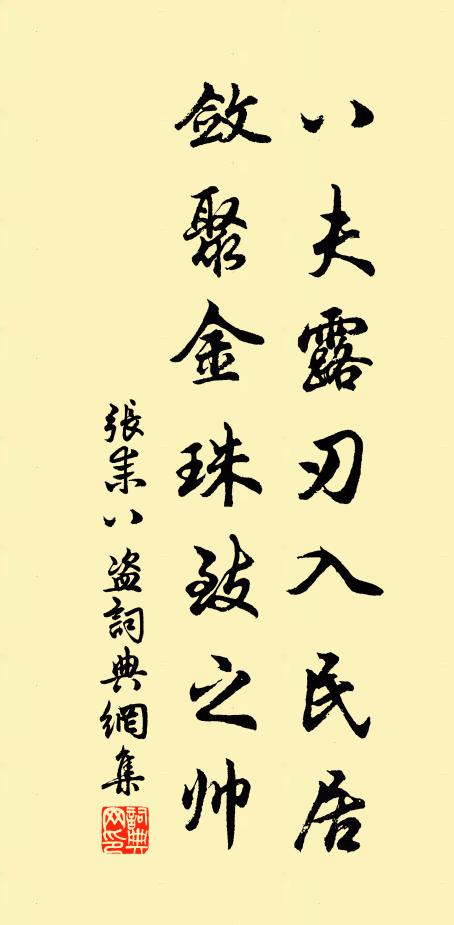 八夫露刃入民居
斂聚金珠致之帅
張耒八盗詞典網集
詞典网印